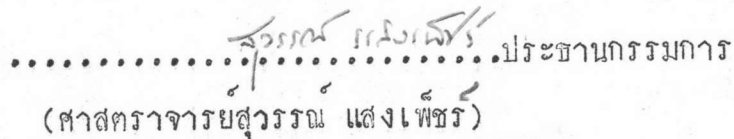 สุวรรณ์ แสงเพ็ชร์
................................ประธานกรรมการ
(ศาสตราจารย์สุวรรณ์ แสงเพ็ชร์)